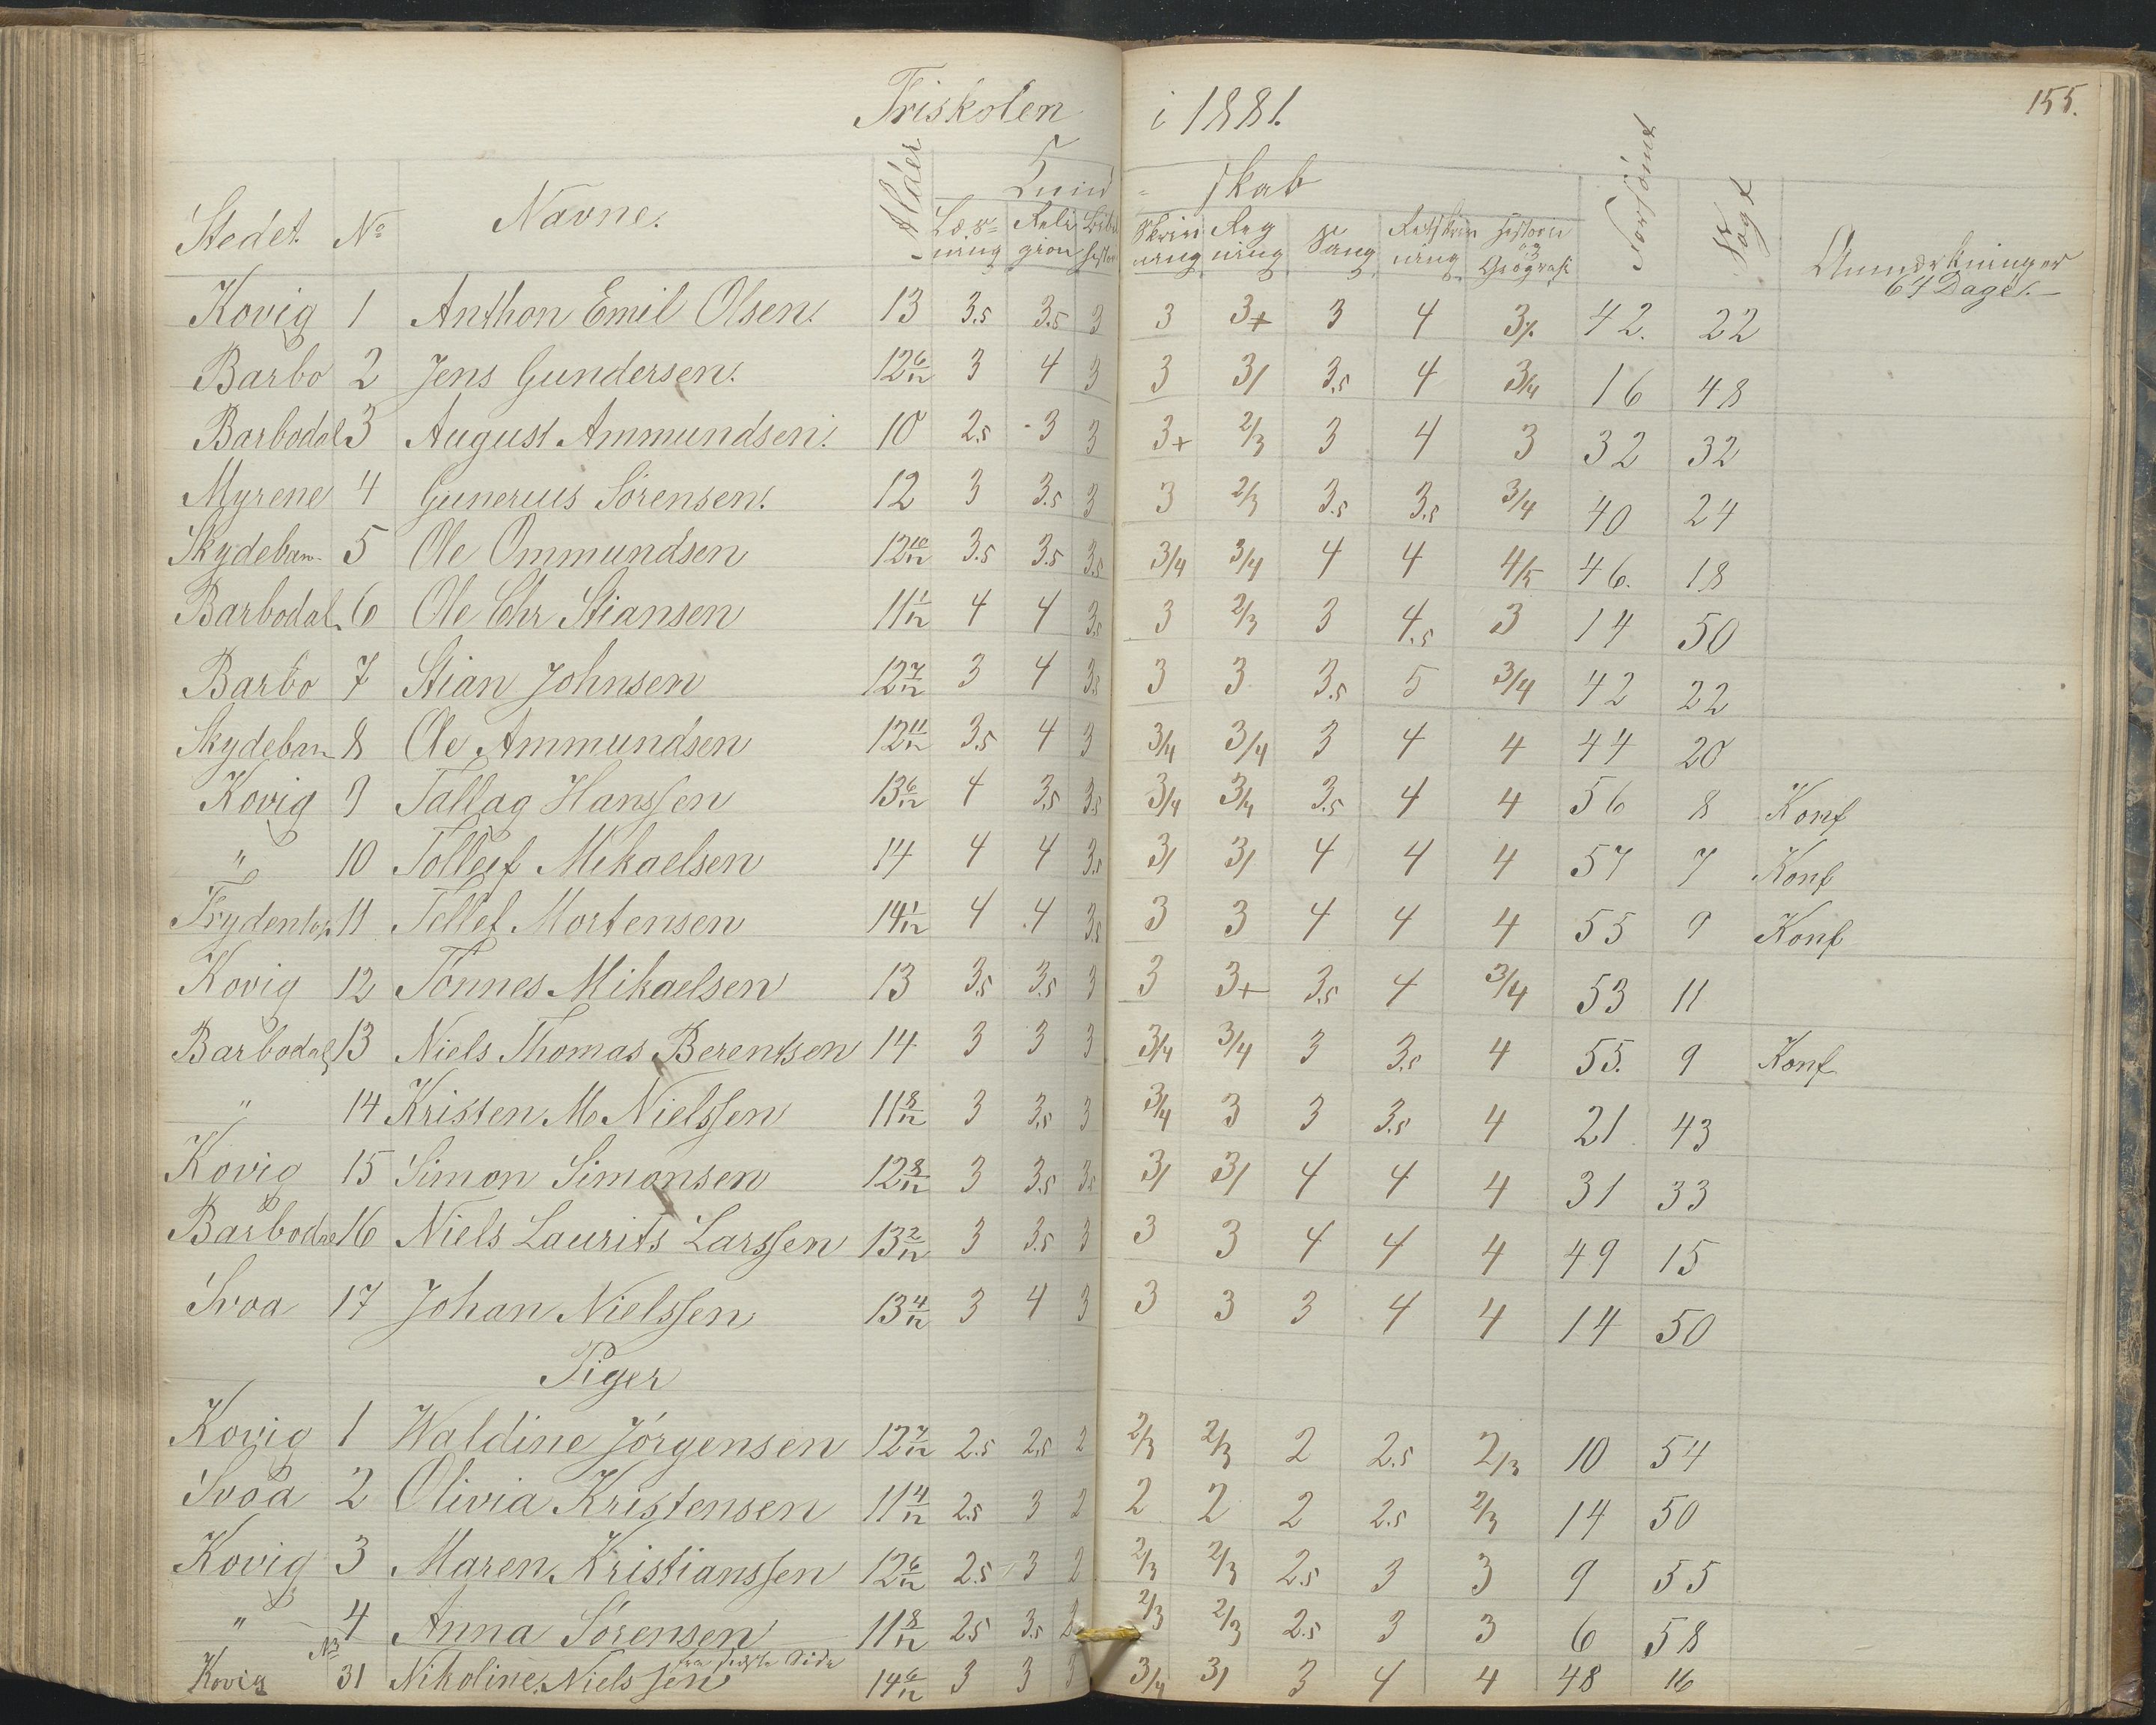 Friskolen i 1881. 155.
Stedet. No Navne. Alder Kund = skab Forsømt Søgt Anmærkninger
Læs= ning Reli gion Bibel histor Skriv ning Reg ning Sang Retskriv ning Historie og Geografi 64 Dage.
Kovig 1 Anthon Emil Olsen. 13 3.5 3.5 3 3 3+ 3 4 42. 22
Barbo 2 Jens Gundersen. 12 6/12 3 4 3 3 3/ 3.5 4 3/4 16 48
Barbodal 3 August Ammundsen. 10 2.5 3 3 3+ 2/3 3 4 3 32 32
Myrene 4 Gunerius Sørensen. 12 3 3.5 3 3 2/3 3.5 3.5 3/4 40 24
Skydeban 5 Ole Ommundsen 12 10/12 3.5 3.5 3.5 3/4 3/4 4 4 4/5 46. 18
Barbodal 6 Ole Chr Stiansen 11 1/12 4 4 3.5 3 2/3 3 4.5 3 14 50
Barbo 7 Stian Johnsen 12 7/12 3 4 3.5 3 3 3.5 5 3/4 42 22
Skydeban 8 Ole Ammundsen 12 11/12 3.5 4 3 3/4 3/4 3 4 4 44 20
Kovig 9 Tallag Hanssen 13 6/12 4 3.5 3.5 3/4 3/4 3.5 4 4 56 8 Konf
" 10 Tolleif Mikaelsen 14 4 4 3.5 3/ 3/ 4 4 4 57 7 Konf
11 Tellef Mortensen 14 1/12 4 4 3.5 3 3 4 4 4 55 9 Konf
Kovig 12 Tönnes Mikaelsen 13 3.5 3.5 3 3 3+ 3.5 4 3/4 53 11
Barbodal 13 Niels Thomas Berentsen 14 3 3 3 3/4 3/4 3 3.5 4 55. 9 Konf
" 14 Kristen M Nielssen 11 8/12 3 3.5 3 3/4 3 3 3.5 4 21 43
Kovig 15 Simon Simonsen 12 8/12 3 3.5 3.5 3/ 3/ 4 4 4 31 33
Barbodal 16 Niels Laurits Larssen 13 2/12 3 3.5 3 3 3 4 4 4 49 15
Svoa 17 Johan Nielssen 13 4/12 3 4 3 3 3 3 4 4 14 50
Piger
Kovig 1 Waldine Jörgensen 12 7/12 2.5 2.5 2 2/3 2/3 2 2.5 2/3 10 54
Svoa 2 Olivia Kristensen 11 4/12 2.5 3 2 2 2 2 2.5 2/3 14 50
Kovig 3 Maren Kristianssen 12 6/12 2.5 3 2 2/3 2/3 2.5 3 3 9 55
" 4 Anna Sörensen 11 8/12 2.5 3.5 2 2/3 2/3 2.5 3 3 6 58
Kovig No 31 Nikoline Nielssen 14 6/12 3 3 3 3/4 3/ 3 4 4 48 16